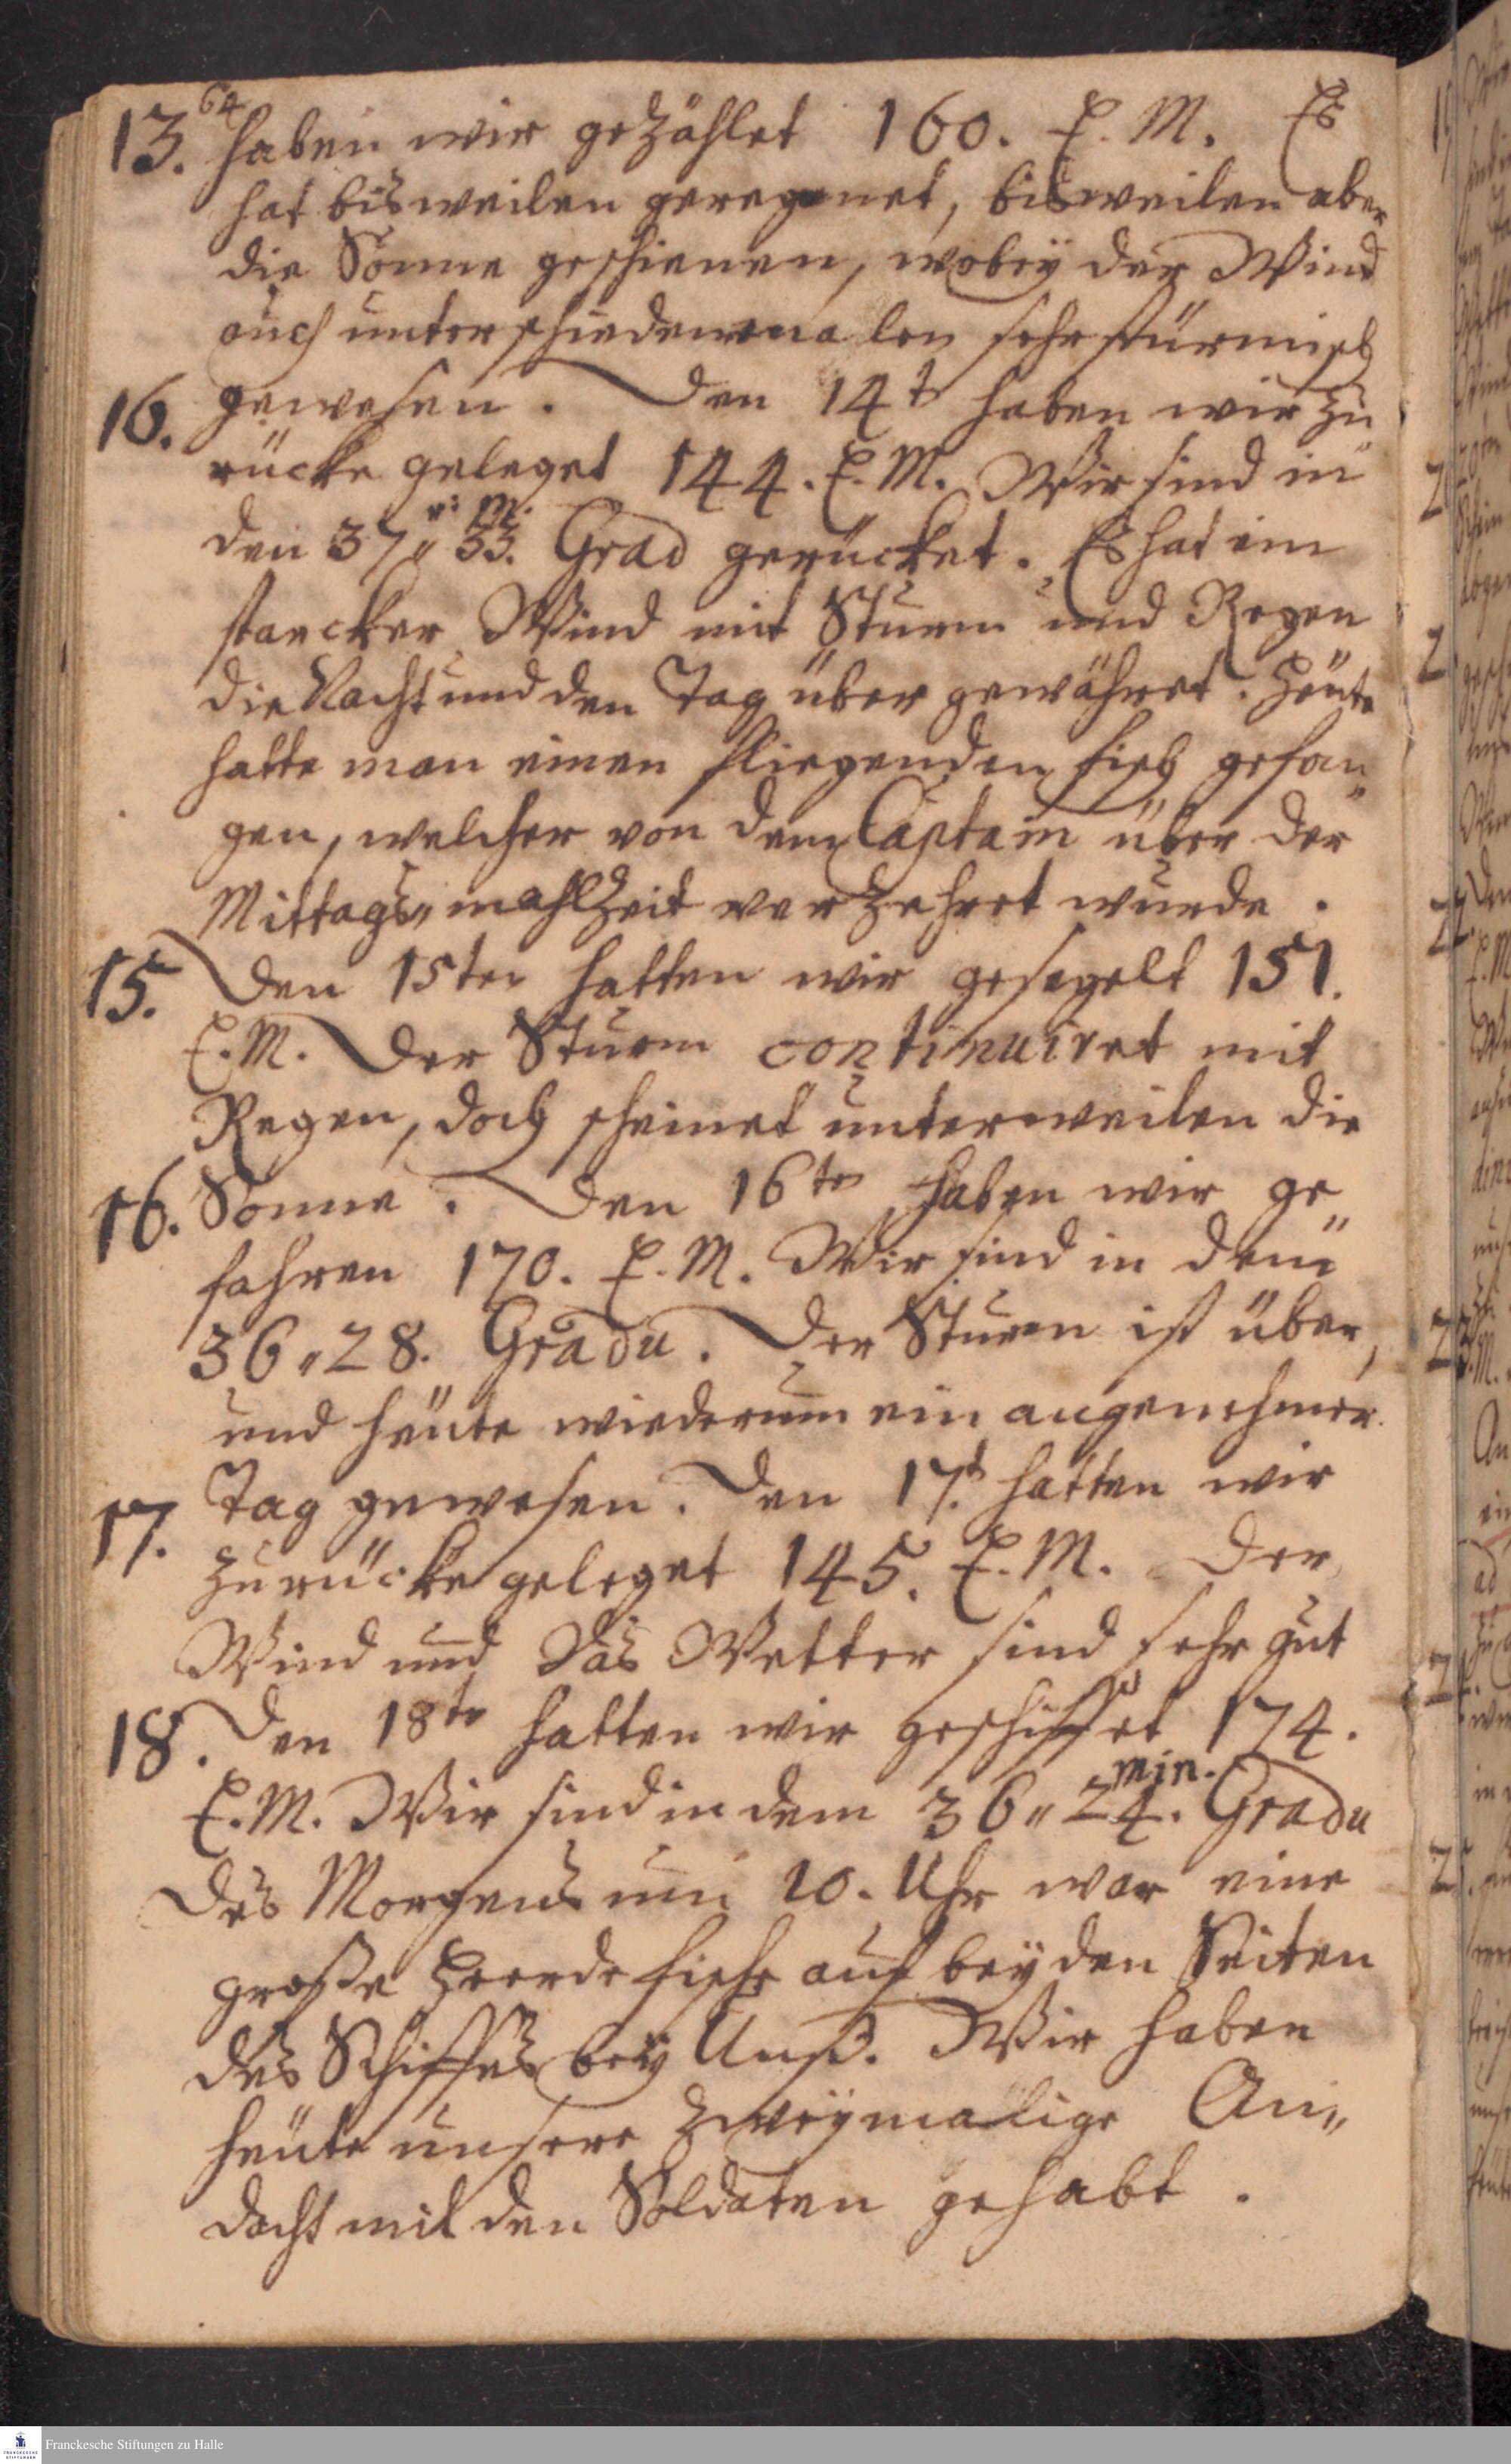 64
13. haben wir gezählet 160. E. M. Es
hat bisweilen geregnet, bisweilen aber
die Sonne geschienen, wobey der Wind
auch unterschiedenemalen sehr stürmisch
16. gewesen. Den 14t haben wir zu
rücke geleget 144. E. M. Wir sind in
den 37 " 33. m. Grad gerücket. Es hat ein
starcker Wind mit Sturm und Regen
die Nacht und den Tag über gewähret. Heute
hatte man einen fliegenden Fisch gefan„
gen, welcher von dem Captain über der
Mittags„mahlzeit verzehrt wurde.
15. Den 15ten hatten wir gesegelt 151.
E. M. Der Sturm continuiret mit
Regen, doch scheinet unterweilen die
16. Sonne. Den 16ten haben wir ge„
fahren 170. E. M. Wir sind in dem
36 " 28. Gradu. Der Sturm ist über,
und heute wiederum ein angenehmer
17. Tag gewesen. Den 17t. hatten wir
zurücke geleget 145. E. M. Der
Wind und das Wetter sind sehr gut
18. Den 18ten hatten wir geschiffet 174.
E. M. Wir sind in dem 36 " 24. min. Gradu
Des Morgens um 10. Uhr war eine
große Heerde Fische auf beyden Seiten
des Schiffes bey Unß. Wir haben
heute unsere zweymalige An„
dacht mit den Soldaten gehabt.
Franckesche Stiftungen zu Halle